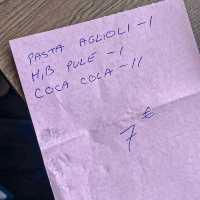 PASTA AGLIOLI - I
H/B PULE - I
COCA COLA - II
7 €